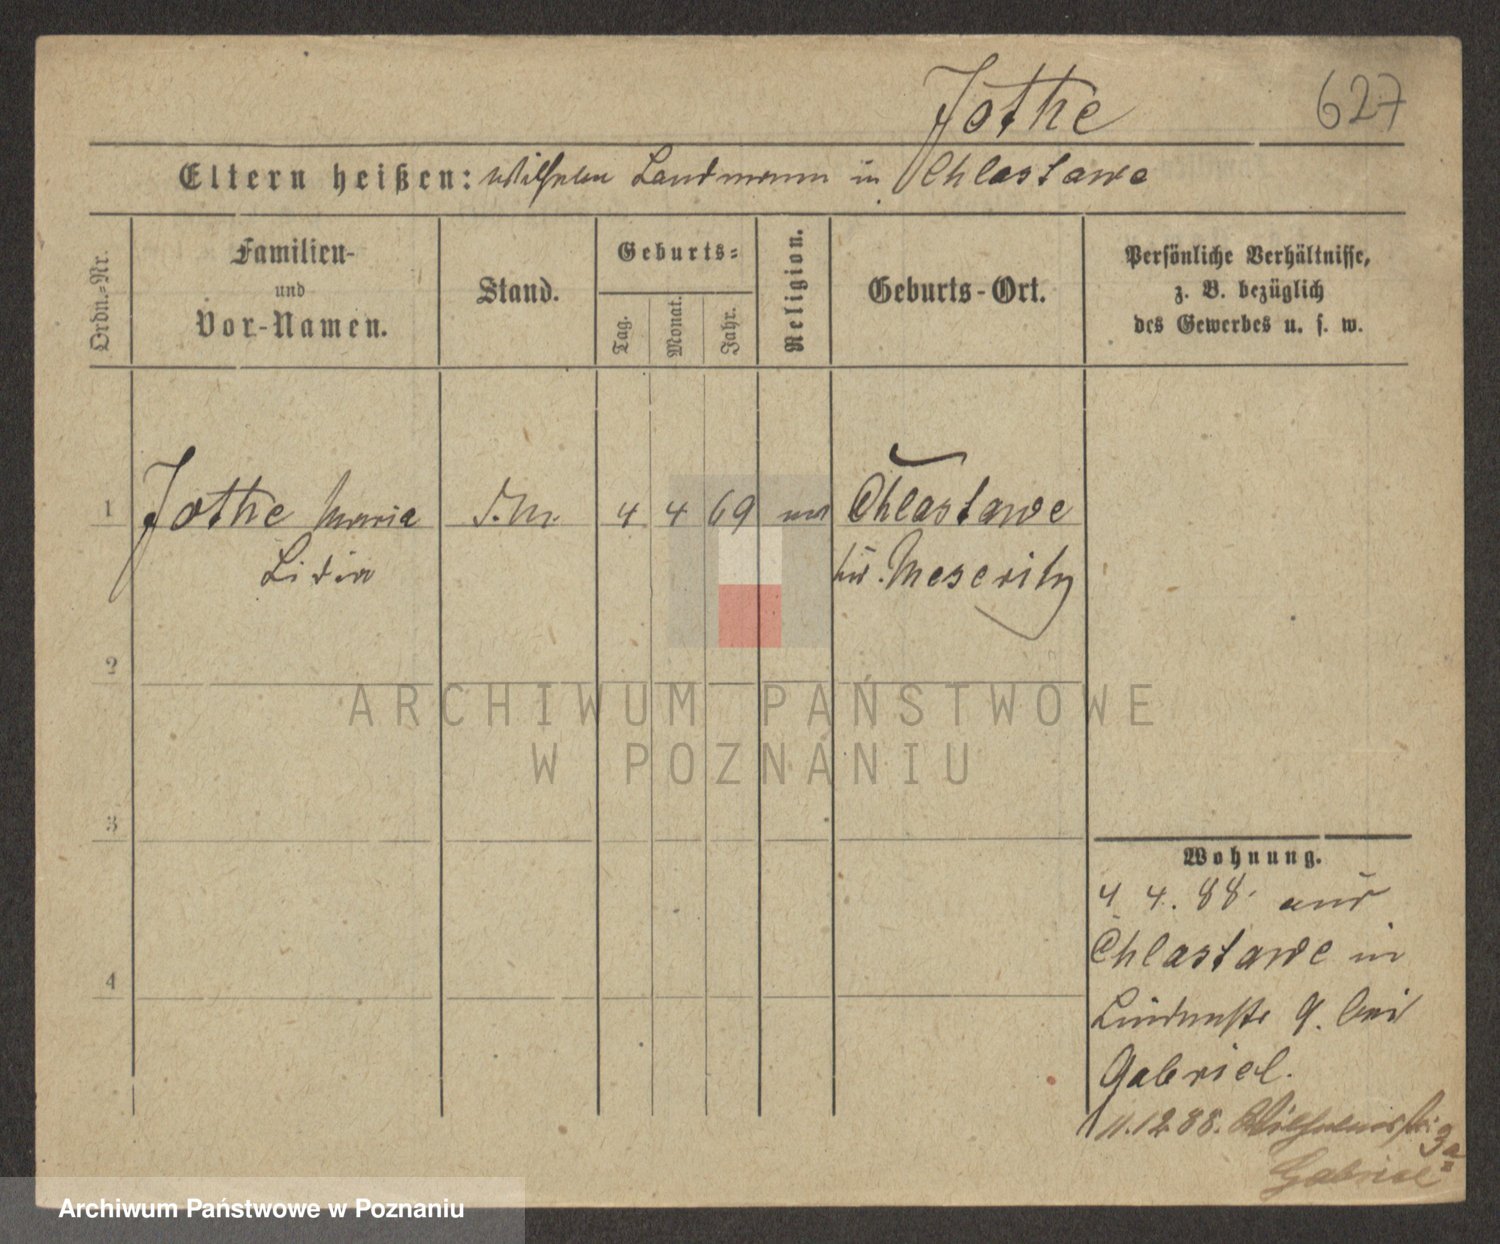 Jothe 627
Eltern heißen: Wilhelm Landmann in Chlastawe
Ordn.-Nr.
Familien-
und
Vor-Namen.
Stand.
Geburts-
Tag.
Monat.
Jahr.
Religion.
Geburts-Ort.
Persönliche Verhältnisse,
z. B. bezüglich
des Gewerbes u. s. w.
1 Jothe Maria 4 4 69 Chlastawe
Lidia Meseritz
2
3
4
Wohnung.
4 4. 88. aus
Chlastawe in
Lindenstr 9. bei
Gabriel.
11.12 88. Wilhelmspl. 3a
Gabriel
ARCHIWUM PAŃSTWOWE
W POZNANIU
Archiwum Państwowe w Poznaniu